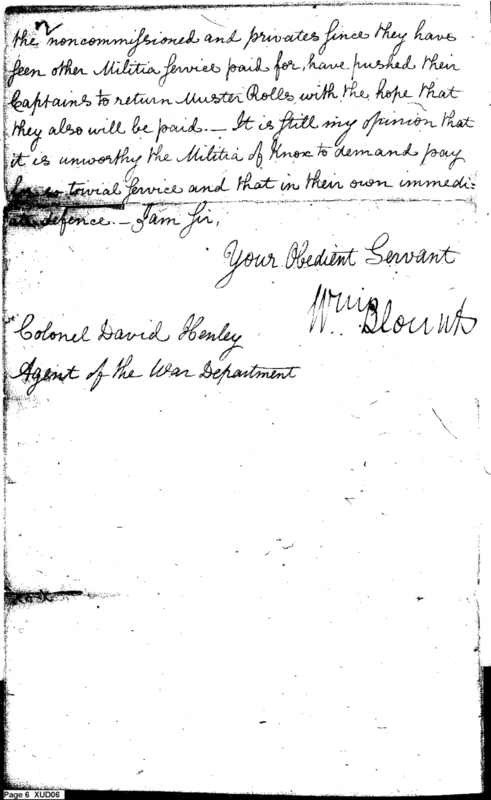 the noncommissioned and privates since they have
seen other Militia service paid for, have pushed their
Captains to return Muster Rolls with the hope that
they also will be paid. — It is still my opinion that
it is unworthy the Militia of Knox to demand pay
for so trivial service and that in their own immedi=
ate defence. — I am Sir,
Your Obedient Servant
Wm. Blount
Colonel David Henley
Agent of the War Department
Page 6 XUD06